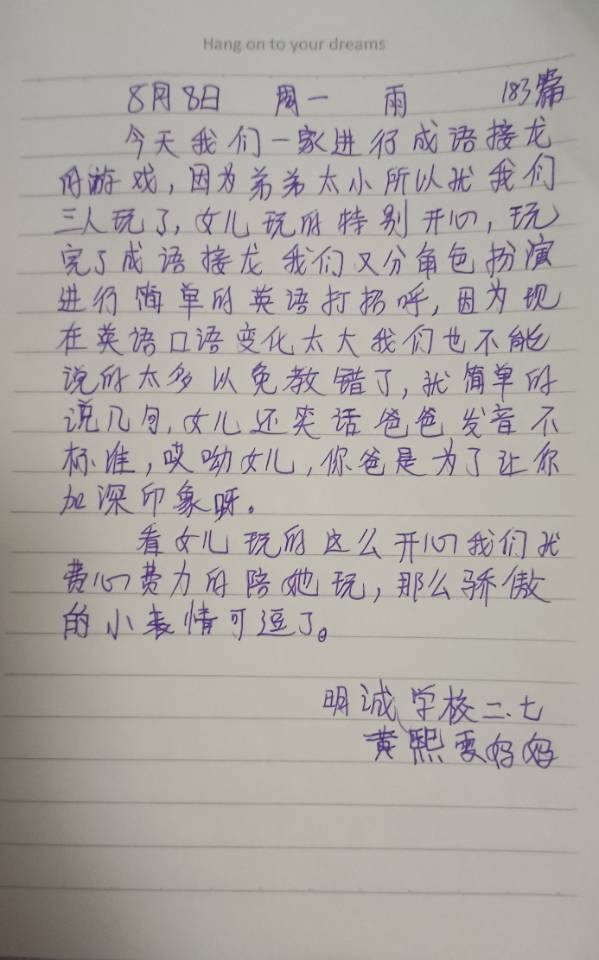 Hang on to your dreams
8月8日 周一 雨 183篇
今天我们一家进行成语接龙
的游戏，因为弟弟太小所以就我们
三人玩了，女儿玩的特别开心，玩
完了成语接龙我们又分角色扮演
进行简单的英语打招呼，因为现
在英语口语变化太大我们也不能
说的太多以免教错了，就简单的
说几句，女儿还笑话爸爸发音不
标准，哎呦女儿，你爸是为了让你
加深印象呀。
看女儿玩的这么开心我们就
费心费力的陪她玩，那么骄傲
的小表情可逗了。
明诚学校二.七
黄熙雯妈妈